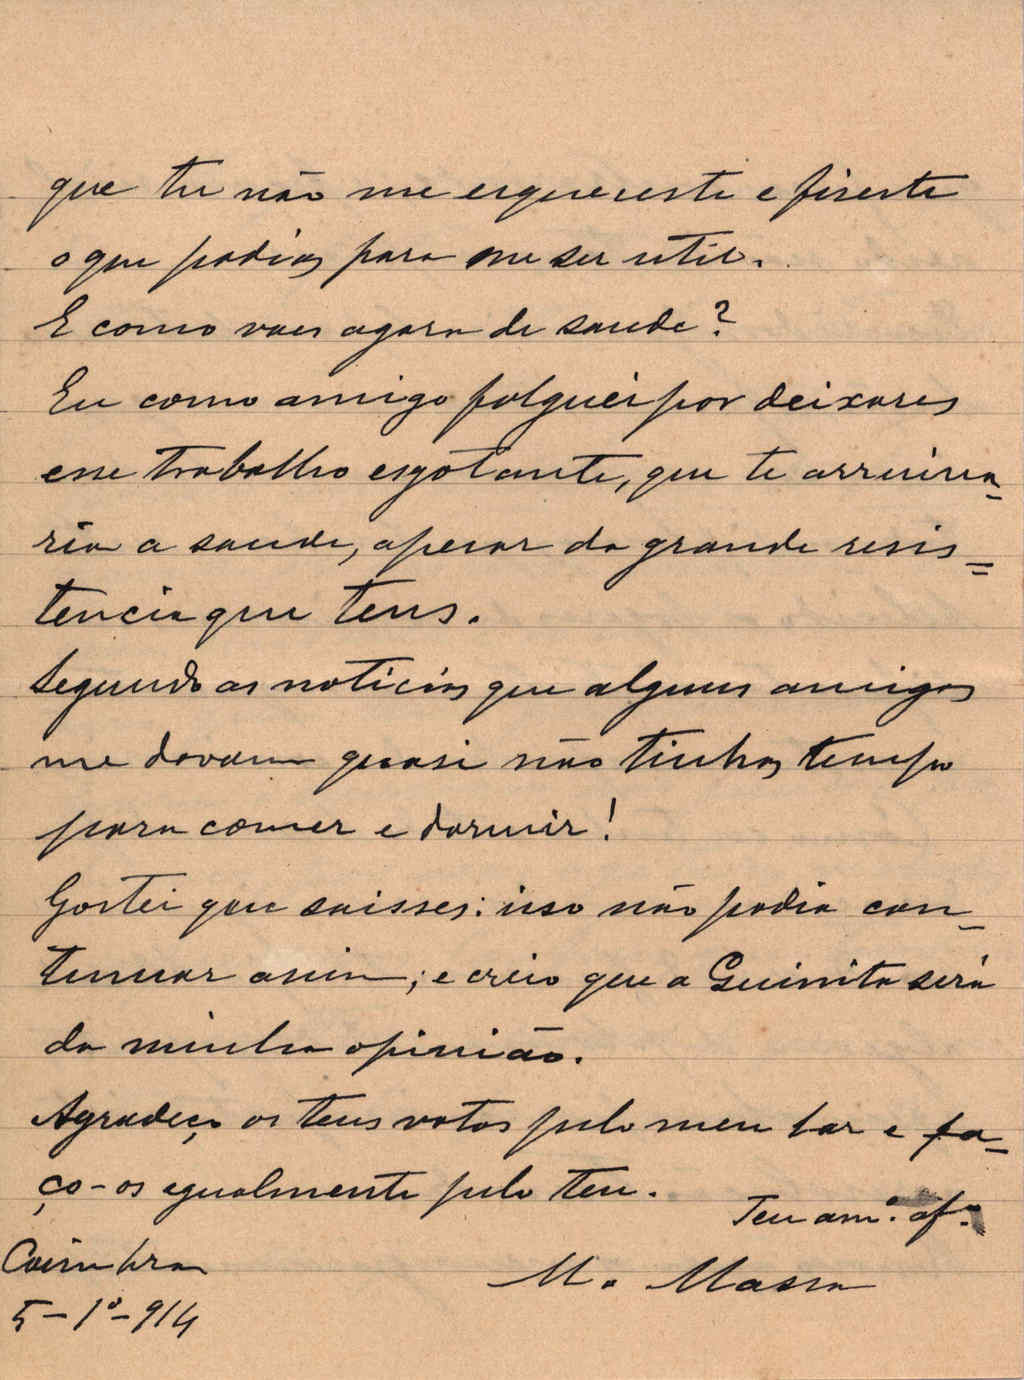 que tu não me esqueceste e fizeste
o que podias para me ser util.
E como vaes agora de saude?
Eu como amigo folguei por deixares
esse trabalho esgotante, que te arruina-
ria a saude, apesar da grande resis=
tencia que tens.
Segundo as noticias que alguns amigos
me davam quasi não tinhas tempo
para comer e dormir!
Gostei que saisses: isso não podia con-
tinuar assim; e creio que a Guinita será
da minha opinião.
Agradeço os teus votos pelo meu lar e fa-
ço-os egualmente pelo teu.
Teu am.º af.º
Coimbra
M. Massa
5-1º-914